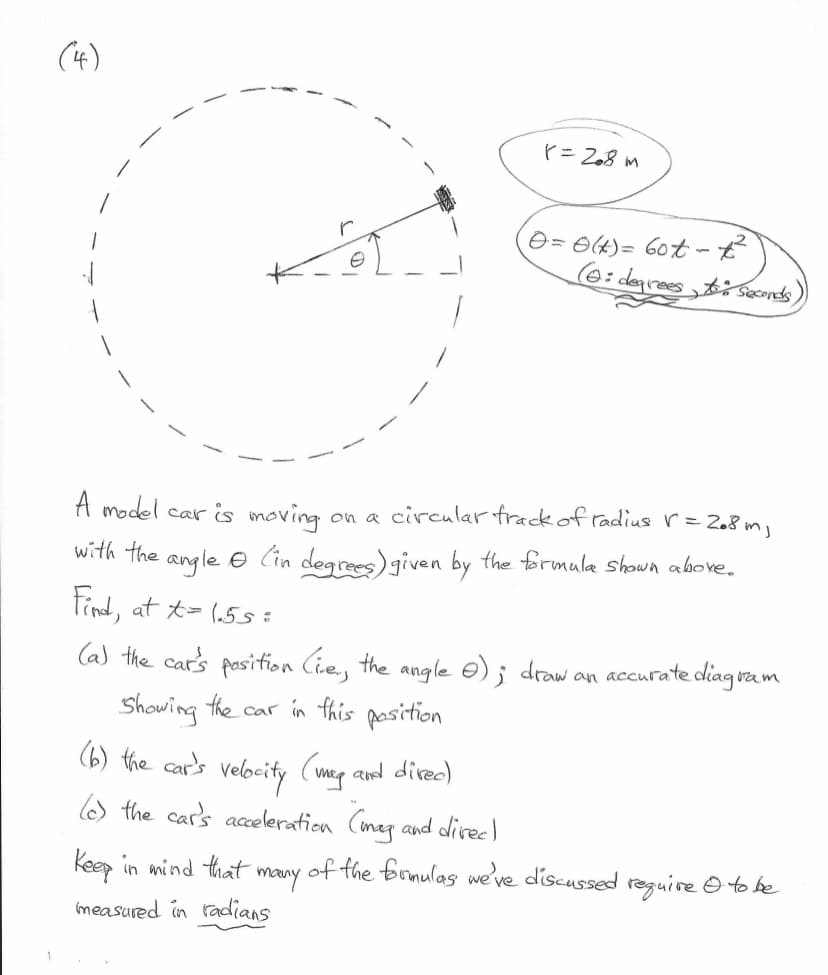 (4)
r = 2.8 m
r
θ
θ = θ(t) = 60t - t²
(θ: degrees, t: seconds)
A model car is moving on a circular track of radius r = 2.8 m,
with the angle θ (in degrees) given by the formula shown above.
Find, at t = 1.5 s :
(a) the car's position (i.e., the angle θ) ; draw an accurate diagram
showing the car in this position
(b) the car's velocity (mag and direc)
(c) the car's acceleration (mag and direc)
Keep in mind that many of the formulas we've discussed require θ to be
measured in radians